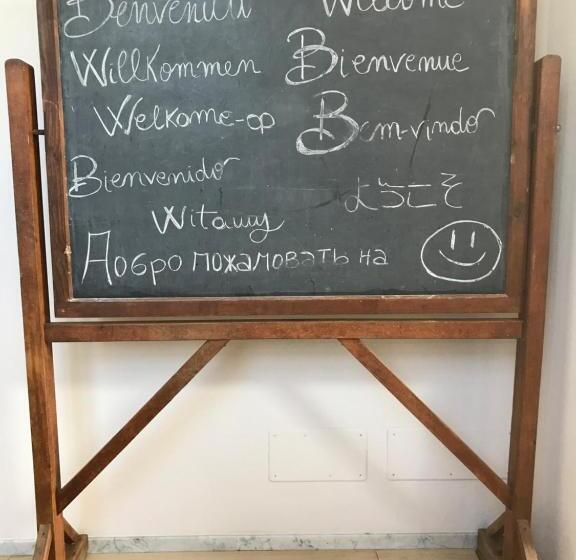 Benvenuti Welcome
Willkommen Bienvenue
Welkome-op Bem-vindo
Bienvenido ようこそ
Witamy
Добро пожаловать на